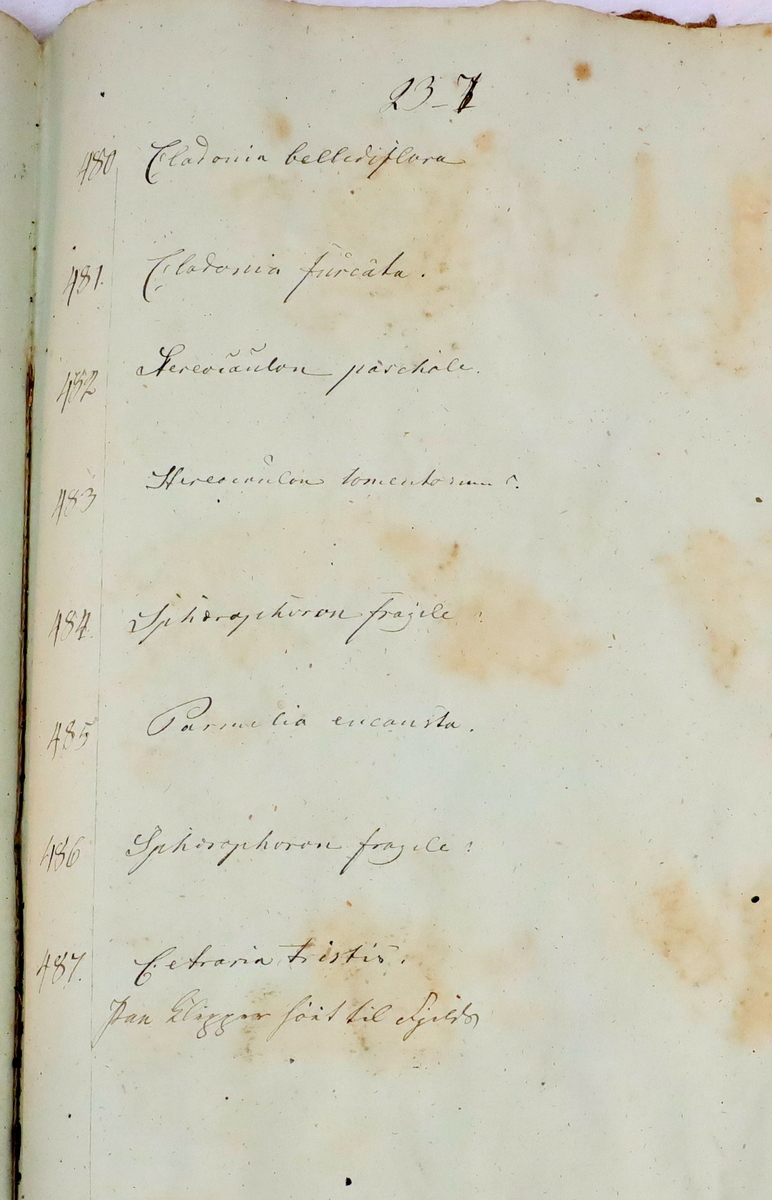 23-7
480. Cladonia bellidiflora
481. Cladonia furcata.
482 Stereocaulon paschale.
483 Stereocaulon tomentosum?
484. Sphærophoron fragile
485 Parmelia encausta.
486 Sphærophoron fragile?
487. Cetraria tristis.
Paa Klipper høit til Fjelds